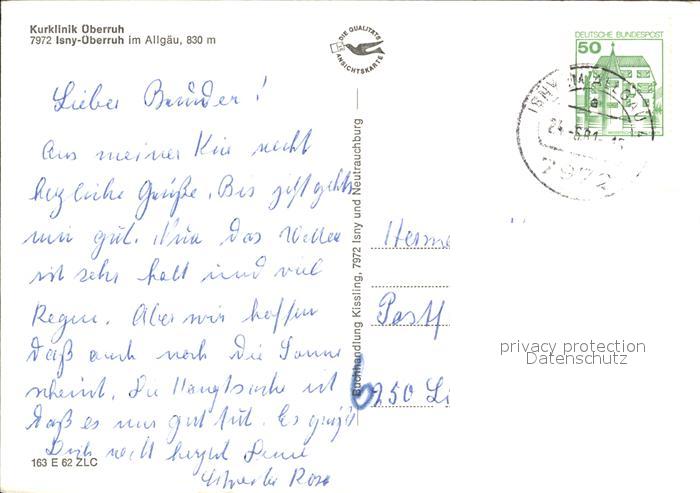 Kurklinik Überruh
7972 Isny-Überruh im Allgäu, 830 m
DIE QUALITÄTS
ANSICHTSKARTE
DEUTSCHE BUNDESPOST
50
ISNY IM ALLGÄU
a
7972
Lieber Bruder!
Aus meiner Kur recht
herzliche Grüße. Bis jetzt geht
mir gut. Nur das Wetter
ist sehr kalt und viel
Regen. Aber wir hoffen
daß auch noch die Sonne
scheint. Die Hauptsache ist
daß es mir gut tut. Es grüßt
Dich recht herzl. Deine
Schwester Rosa
Buchhandlung Kissling, 7972 Isny und Neutrauchburg
Herm
Postf
7250 L
privacy protection
Datenschutz
163 E 62 ZLC